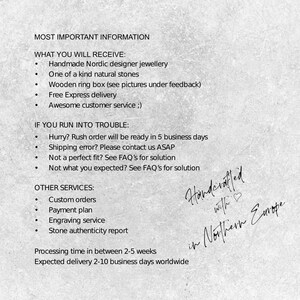 MOST IMPORTANT INFORMATION
WHAT YOU WILL RECEIVE:
• Handmade Nordic designer jewellery
• One of a kind natural stones
• Wooden ring box (see pictures under feedback)
• Free Express delivery
• Awesome customer service ;)
IF YOU RUN INTO TROUBLE:
• Hurry? Rush order will be ready in 5 business days
• Shipping error? Please contact us ASAP
• Not a perfect fit? See FAQ's for solution
• Not what you expected? See FAQ's for solution
OTHER SERVICES:
• Custom orders
• Payment plan
• Engraving service
• Stone authenticity report
Processing time in between 2-5 weeks
Expected delivery 2-10 business days worldwide
Handcrafted
with ♡
in Northern Europe